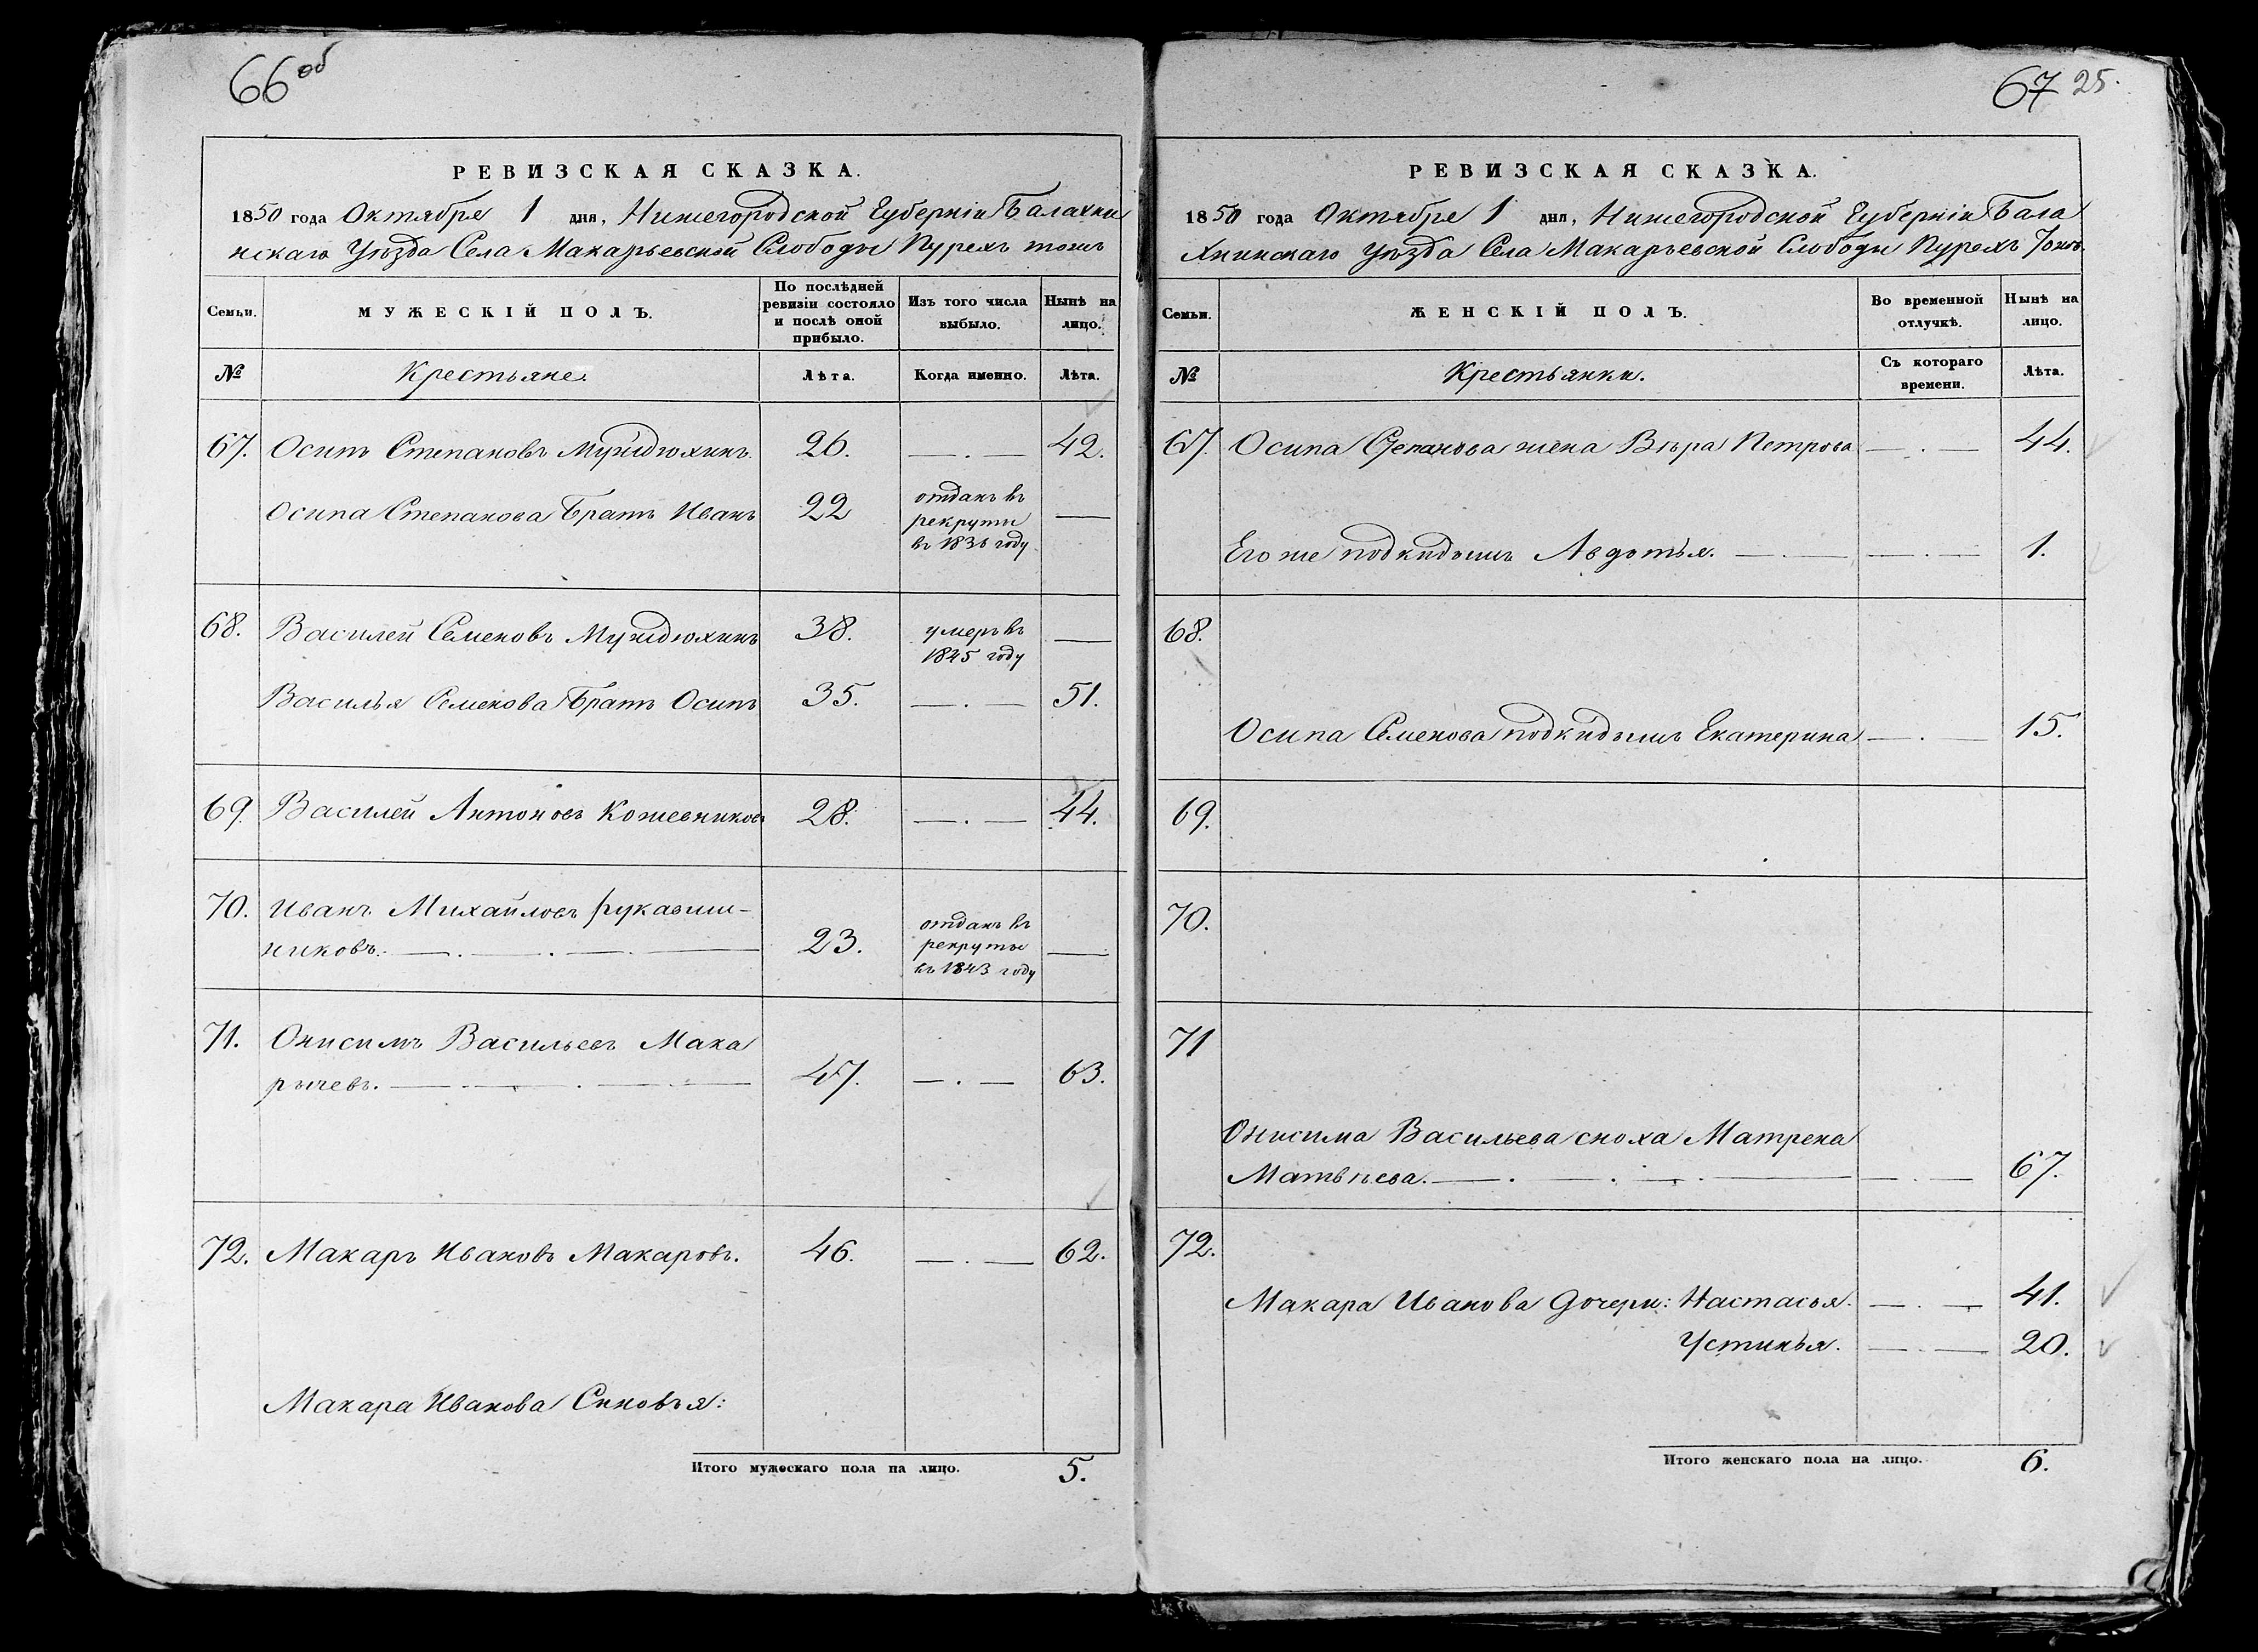 66об
РЕВИЗСКАЯ СКАЗКА.
1850 года Октября 1 дня, Нижегородской Губерніи Балахни
нскаго Уѣзда Села Макарьевской Слободы Пурехъ тожъ
Семьи.
МУЖЕСКІЙ ПОЛЪ.
По послѣдней
ревизіи состояло
и послѣ оной
прибыло.
Изъ того числа
выбыло.
Нынѣ на
лицо.
№
Крестьяне.
Лѣта.
Когда именно.
Лѣта.
67. Осипъ Степановъ 26. 42.
Осипа Степанова Братъ Иванъ 22
отданъ въ
рекруты
въ 1836 году
68. Василей Семеновъ 38.
умеръ въ
1845 году
Василья Семенова Братъ Осипъ 35. 51.
69. Василей Антоновъ Кожевниковъ 28. 44.
70. Иванъ Михайловъ Рукавиш-
никовъ. 23.
отданъ въ
рекруты
въ 1843 году
71. Онисимъ Васильевъ Мака
рычевъ. 47. 63.
72. Макаръ Ивановъ Макаровъ. 46. 62.
Макара Иванова Сыновья:
Итого мужескаго пола на лицо. 5.
67 25.
РЕВИЗСКАЯ СКАЗКА.
1850 года Октября 1 дня, Нижегородской Губерніи Бала
хнинскаго Уѣзда Села Макарьевской Слободы Пурехъ Тожъ
Семьи.
ЖЕНСКІЙ ПОЛЪ.
Во временной
отлучкѣ.
Нынѣ на
лицо.
№
Крестьянки.
Съ котораго
времени.
Лѣта.
67. Осипа Степанова жена Вѣра Петрова 44.
Его же подкидышъ Авдотья. 1.
68.
Осипа Семенова подкидышъ Екатерина 15.
69.
70.
71
Онисима Васильева сноха Матрена
Матвѣева. 67.
72.
Макара Иванова дочери: Настасья. 41.
Устинья. 20.
Итого женскаго пола на лицо. 6.